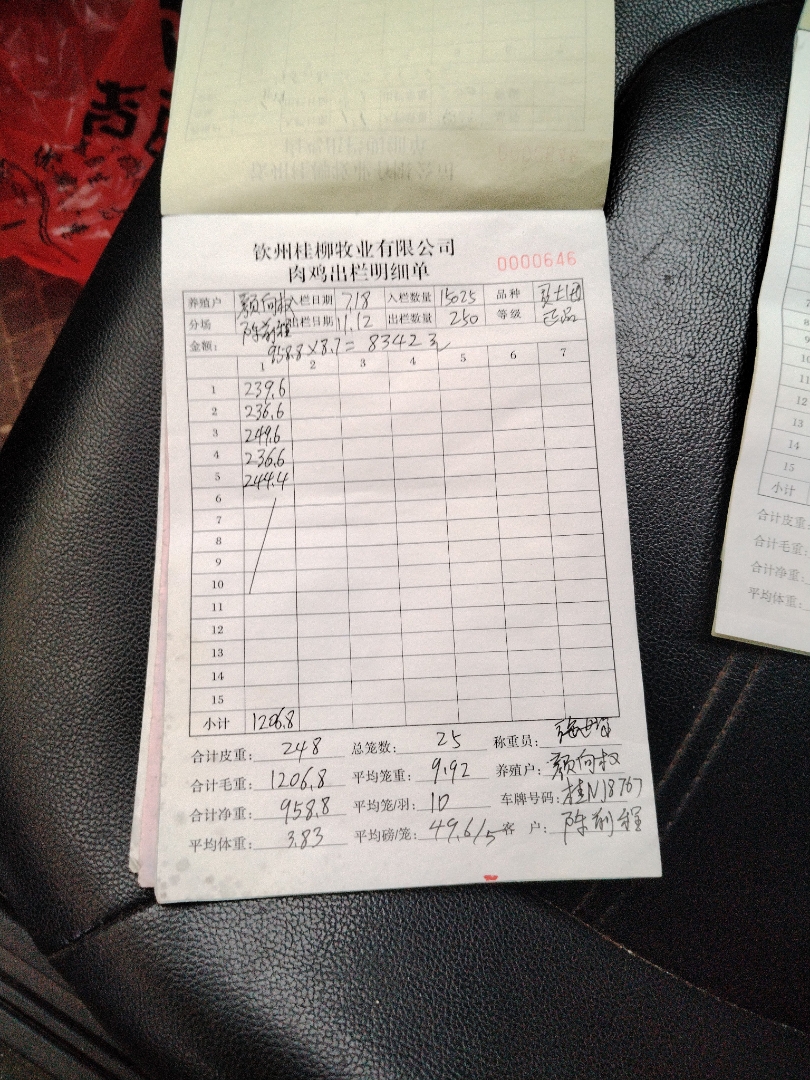 钦州桂柳牧业有限公司
肉鸡出栏明细单
0000646
养殖户 颜向权 入栏日期 7.18 入栏数量 15025 品种
分场 陈前程 出栏日期 11.12 出栏数量 250 等级 正品
金额: 958.8×8.7=8342元
1 2 3 4 5 6 7
1 239.6
2 236.6
3 249.6
4 236.6
5 244.4
6
7
8
9
10
11
12
13
14
15
小计 1206.8
合计皮重: 248 总笼数: 25 称重员:
合计毛重: 1206.8 平均笼重: 9.92 养殖户: 颜向权
合计净重: 958.8 平均笼/羽: 10 车牌号码: 桂NJ8767
平均体重: 3.83 平均磅/笼: 49.6/5 客 户: 陈前程
8
9
10
11
12
13
14
15
小计
合计皮重:
合计毛重:
合计净重:
平均体重: